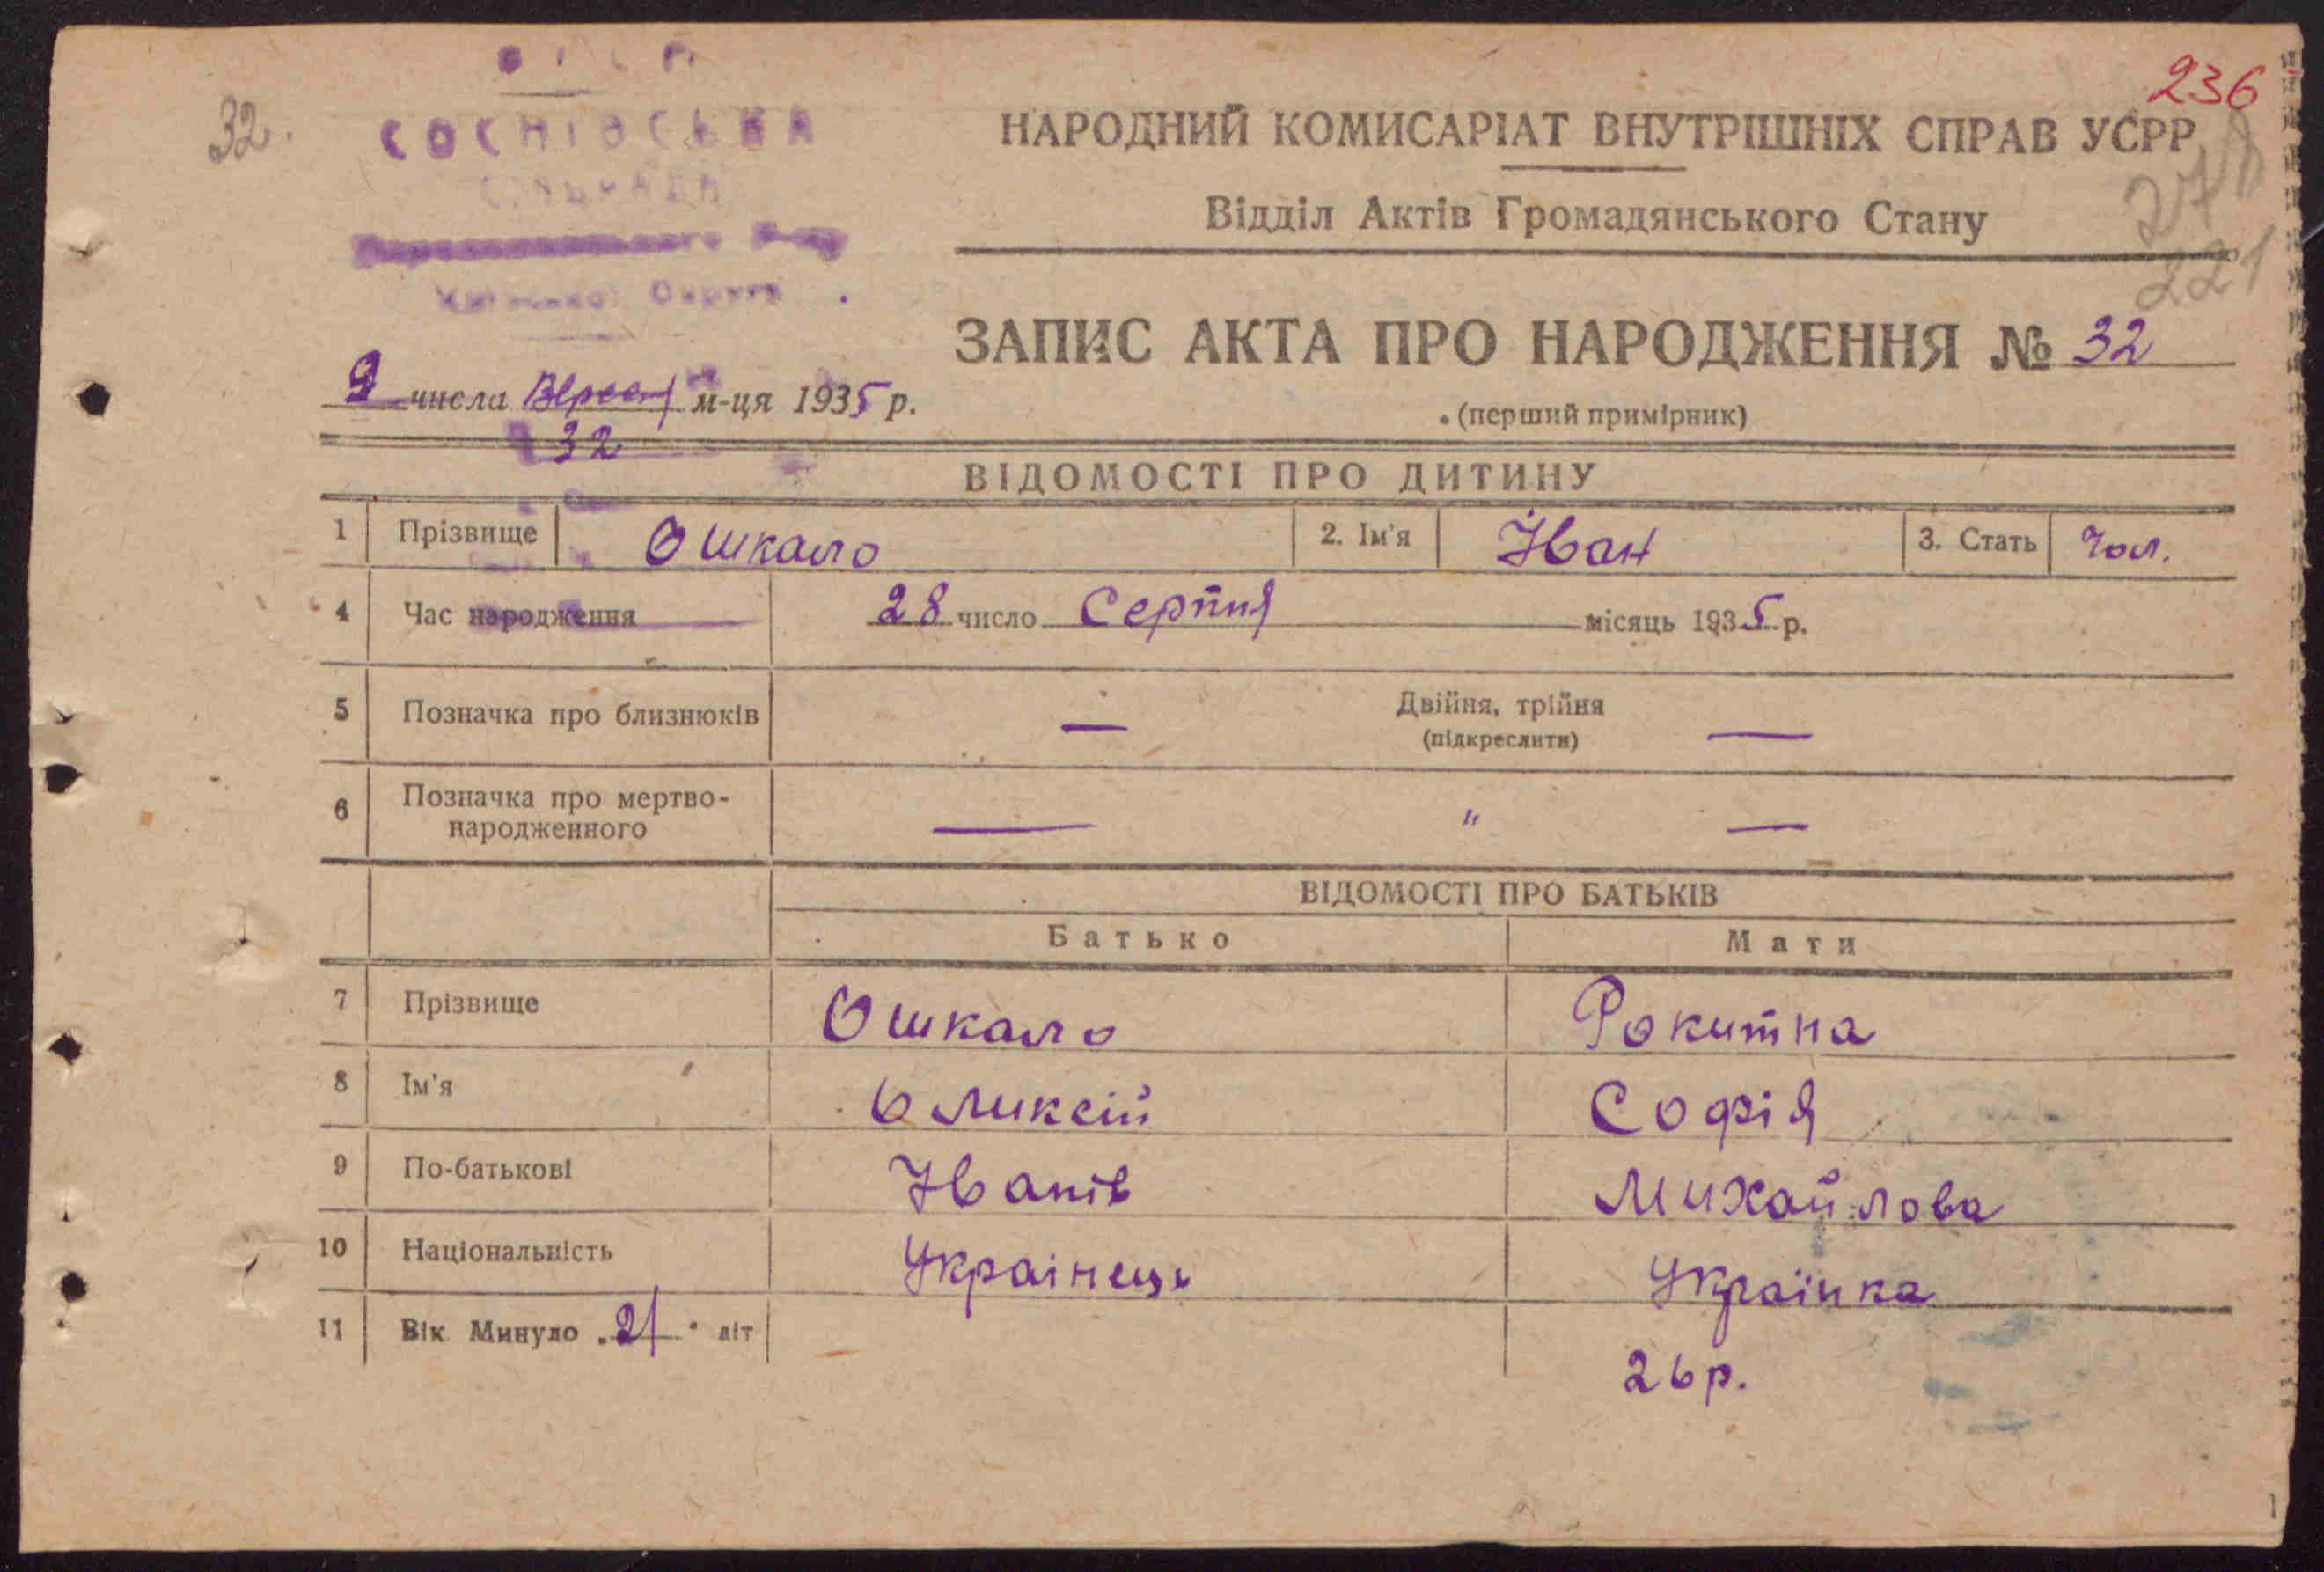 236
32.
УСРР
СОСНІВСЬКА
СІЛЬРАДА
Округи
НАРОДНИЙ КОМИСАРІАТ ВНУТРІШНІХ СПРАВ УСРР
278
Відділ Актів Громадянського Стану
221
ЗАПИС АКТА ПРО НАРОДЖЕННЯ № 32
2 числа Вересня м-ця 1935 р.
(перший примірник)
32
ВІДОМОСТІ ПРО ДИТИНУ
1 Прізвище Ошкало 2. Ім'я Іван 3. Стать Чол.
4 Час народження 28 число Серпня місяць 1935 р.
5 Позначка про близнюків — Двійня, трійня —
(підкреслити)
6 Позначка про мертво-
народженного — " —
ВІДОМОСТІ ПРО БАТЬКІВ
Батько Мати
7 Прізвище Ошкало Рокитна
8 Ім'я Оликсій Софія
9 По-батькові Іванів Михайлова
10 Національність Украінець Українка
11 Вік Минуло „21" літ
26 р.